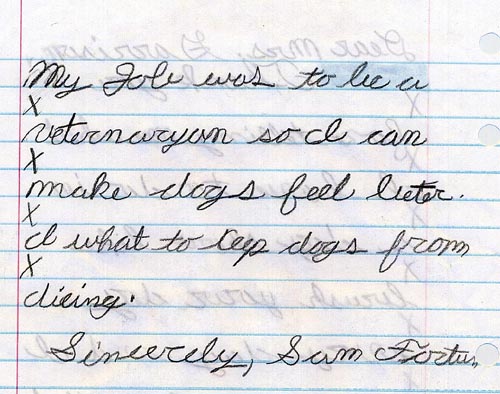 My Job was to be a
X
veternaryan so I can
X
make dogs feel beter.
X
I what to kep dogs from
X
dieing.
Sincerely, Sam